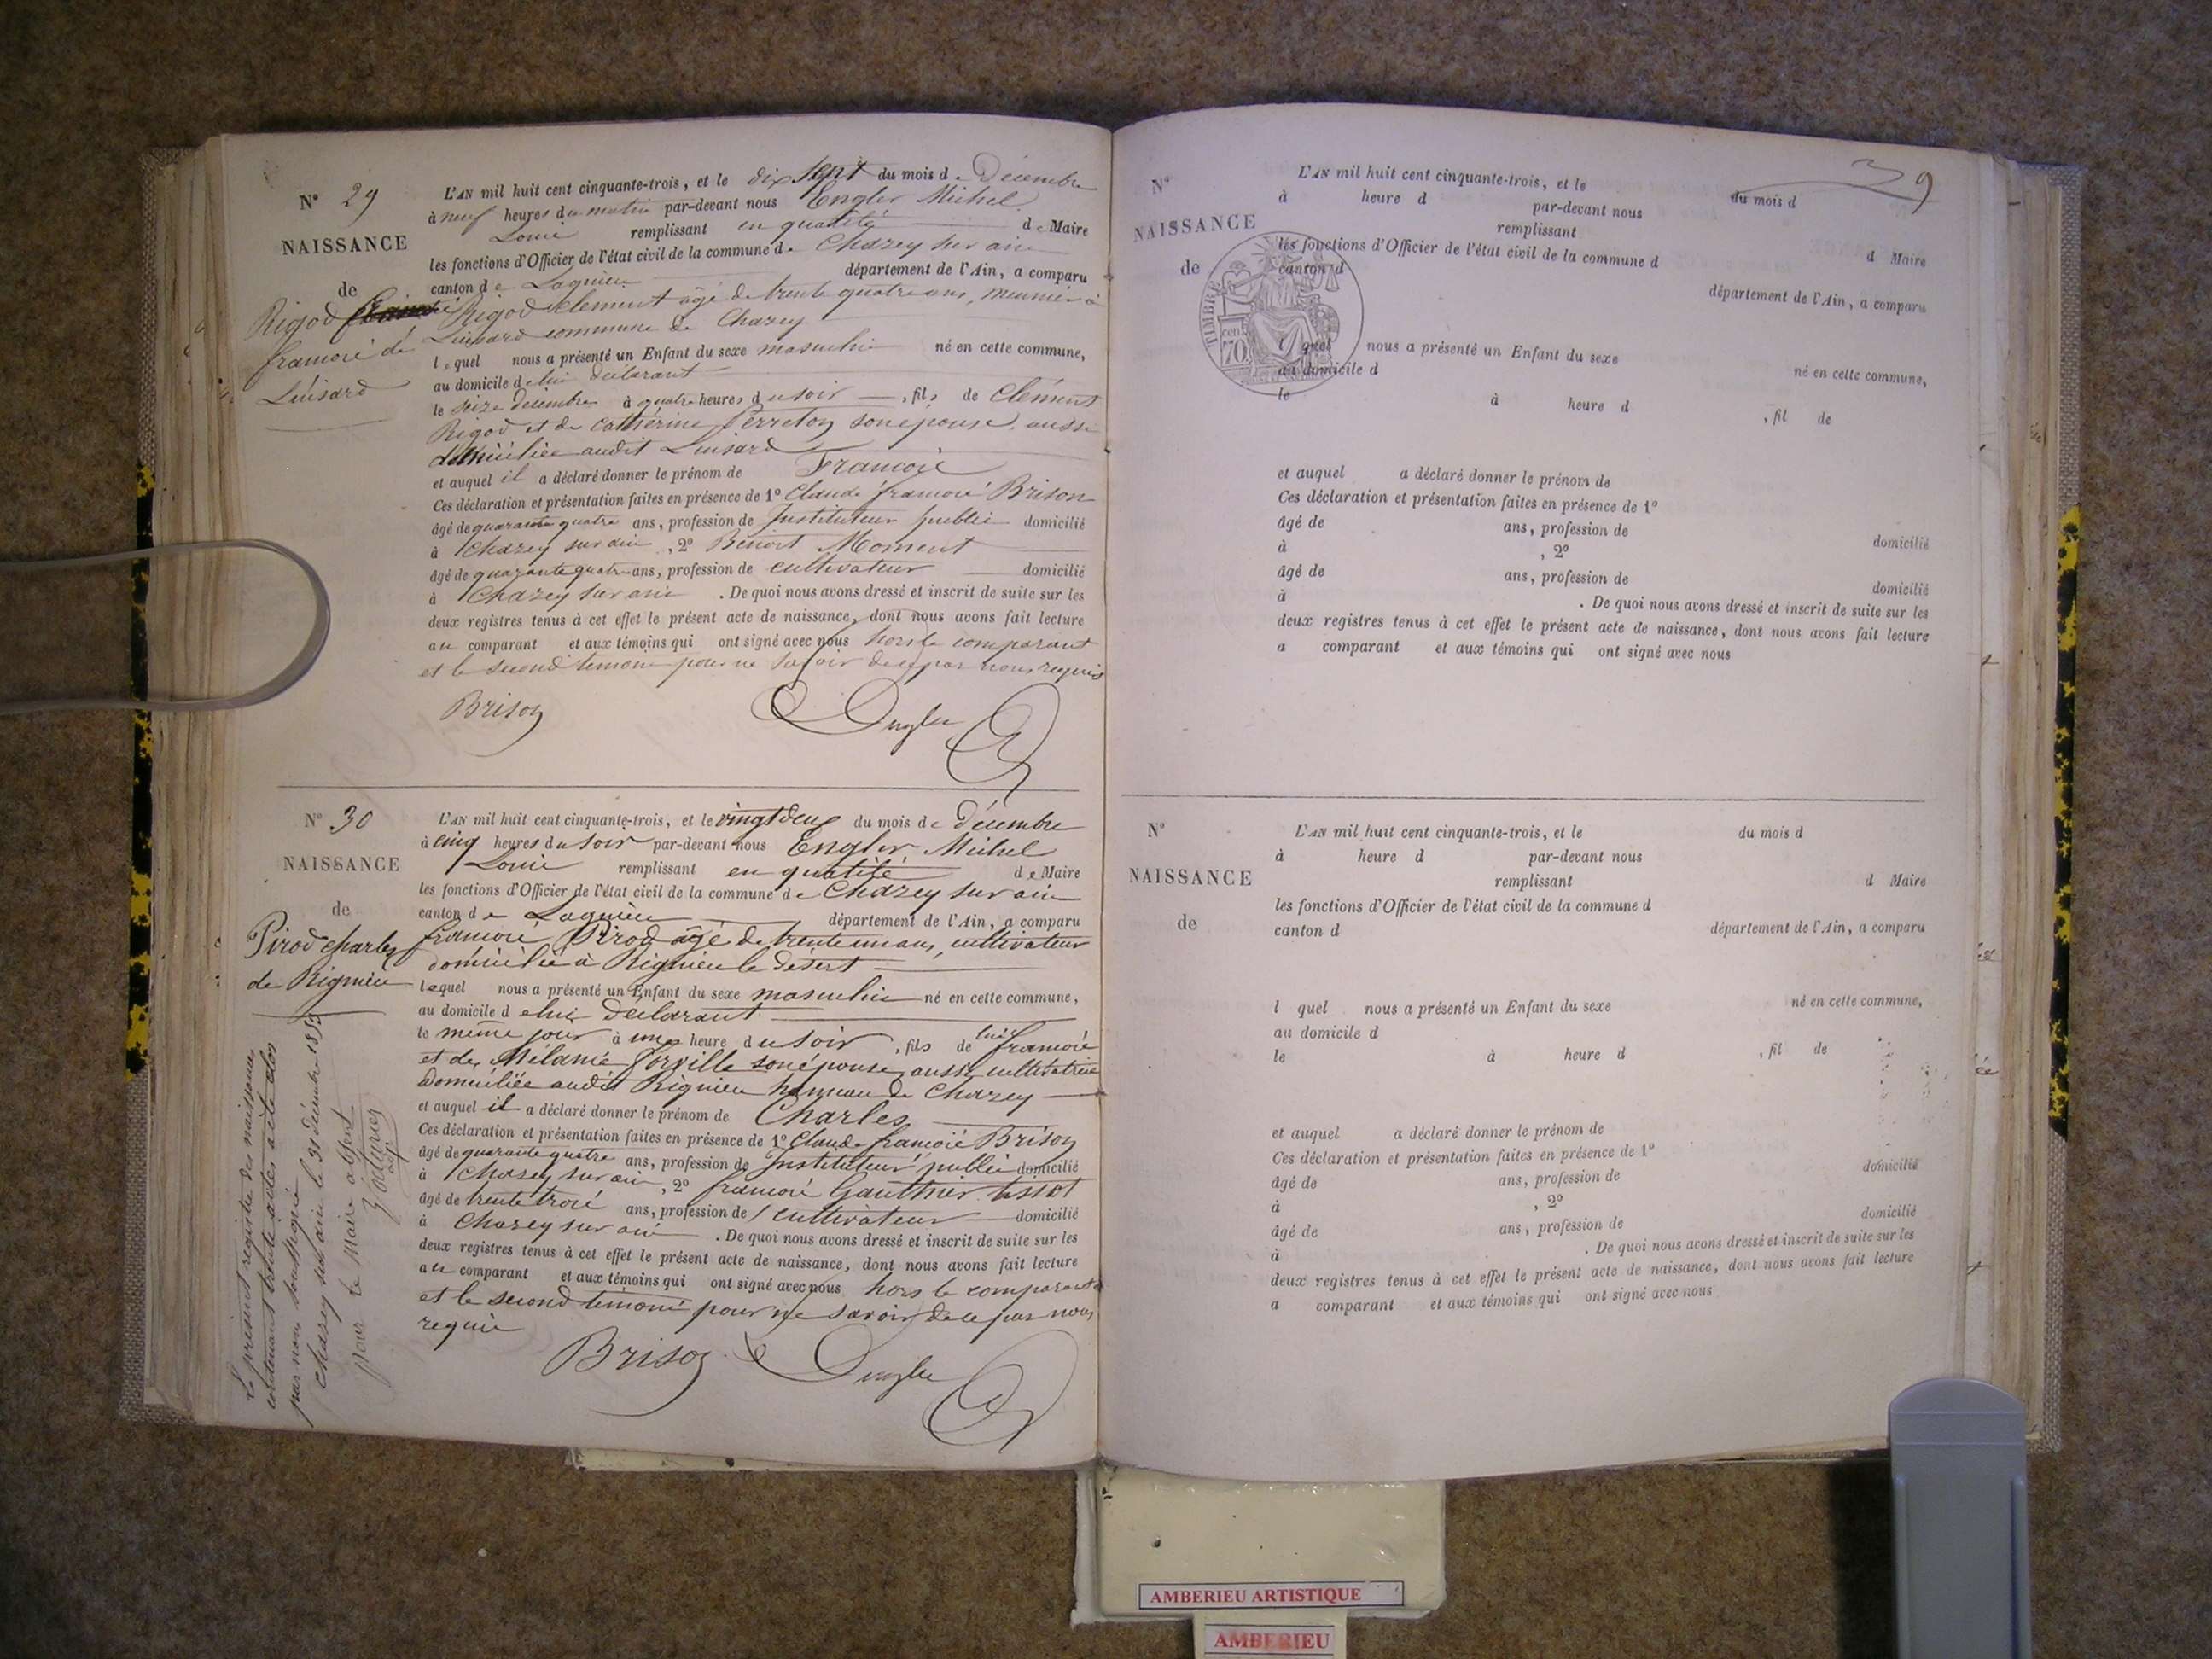 N° 29
NAISSANCE
de
Rigod
francois de
Luisard
L'AN mil huit cent cinquante-trois, et le dix sept du mois de Décembre
à neuf heures du matin par-devant nous Engler Michel
Louis remplissant en qualité de Maire
les fonctions d'Officier de l'état civil de la commune de Chazey sur ain
canton de Lagnieu département de l'Ain, a comparu
Rigod Clement âgé de trente quatre ans, meunier à
Luisard commune de Chazey
lequel nous a présenté un Enfant du sexe masculin né en cette commune,
au domicile de lui déclarant
le seize decembre à quatre heures du soir, fils de Clément
Rigod et de Cathérine Perreton son épouse, aussi
domiciliée audit Luisard
et auquel il a déclaré donner le prénom de Francois
Ces déclaration et présentation faites en présence de 1° Claude francois Brison
âgé de quarante quatre ans, profession de Instituteur public domicilié
à Chazey sur ain, 2° Benoit Moment
âgé de quarante quatre ans, profession de cultivateur domicilié
à Chazey sur ain. De quoi nous avons dressé et inscrit de suite sur les
deux registres tenus à cet effet le présent acte de naissance, dont nous avons fait lecture
au comparant et aux témoins qui ont signé avec nous hors le comparant
et le second temoin pour ne savoir de ce par nous requis
Brison Engler
N° 30
NAISSANCE
de
Pirod Charles
de Rignieu
L'AN mil huit cent cinquante-trois, et le vingt deux du mois de Décembre
à cinq heures du soir par-devant nous Engler Michel
Louis remplissant en qualité de Maire
les fonctions d'Officier de l'état civil de la commune de Chazey sur ain
canton de Lagnieu département de l'Ain, a comparu
francois Pirod âgé de trente un ans, cultivateur
domicilié à Rignieu le désert
lequel nous a présenté un Enfant du sexe masculin né en cette commune,
au domicile de lui déclarant
le même jour à une heure du soir, fils de lui francois
et de Mélanie Jorville son épouse, aussi cultivatrice
domiciliée audit Rignieu hameau de Chazey
et auquel il a déclaré donner le prénom de Charles
Ces déclaration et présentation faites en présence de 1° Claude francois Brison
âgé de quarante quatre ans, profession de Instituteur public domicilié
à Chazey sur ain, 2° francois Gauthier tissot
âgé de trente trois ans, profession de cultivateur domicilié
à Chazey sur ain. De quoi nous avons dressé et inscrit de suite sur les
deux registres tenus à cet effet le présent acte de naissance, dont nous avons fait lecture
au comparant et aux témoins qui ont signé avec nous hors le comparant
et le second témoin pour ne savoir de ce par nous
requis
Brison Engler
Le présent registre des naissances
contenant trente actes a été clos
par nous soussigné
Chazey sur ain le 31 Décembre 1853
Pour le Maire absent
39
N°
NAISSANCE
de
TIMBRE
cen.
70
L'AN mil huit cent cinquante-trois, et le du mois d
à heure d par-devant nous
remplissant d Maire
les fonctions d'Officier de l'état civil de la commune d
canton d département de l'Ain, a comparu
l quel nous a présenté un Enfant du sexe né en cette commune,
au domicile d
le à heure d , fil de
et auquel a déclaré donner le prénom de
Ces déclaration et présentation faites en présence de 1°
âgé de ans, profession de domicilié
à , 2°
âgé de ans, profession de domicilié
à . De quoi nous avons dressé et inscrit de suite sur les
deux registres tenus à cet effet le présent acte de naissance, dont nous avons fait lecture
a comparant et aux témoins qui ont signé avec nous
N°
NAISSANCE
de
L'AN mil huit cent cinquante-trois, et le du mois d
à heure d par-devant nous
remplissant d Maire
les fonctions d'Officier de l'état civil de la commune d
canton d département de l'Ain, a comparu
l quel nous a présenté un Enfant du sexe né en cette commune,
au domicile d
le à heure d , fil de
et auquel a déclaré donner le prénom de
Ces déclaration et présentation faites en présence de 1°
âgé de ans, profession de domicilié
à , 2°
âgé de ans, profession de domicilié
à . De quoi nous avons dressé et inscrit de suite sur les
deux registres tenus à cet effet le présent acte de naissance, dont nous avons fait lecture
a comparant et aux témoins qui ont signé avec nous
AMBERIEU ARTISTIQUE
AMBERIEU